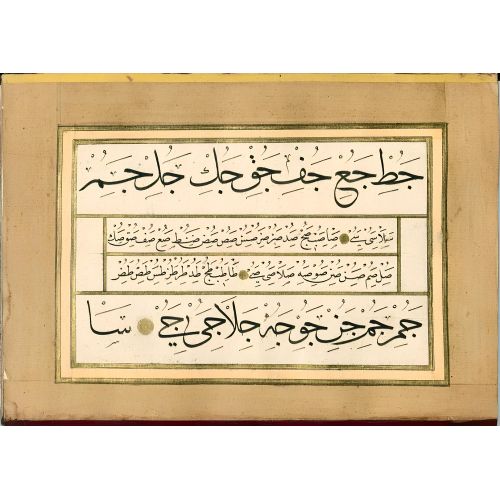 جط جع جف جق جك جل جم
سلا سى ے صا صب صج صد صر صس صص صط صع صف صق صك
صل صم صن صو صه صلا صى ے طا طب طج طد طر طس طص طط
جم جم جن جو جه جلا جى ے سا